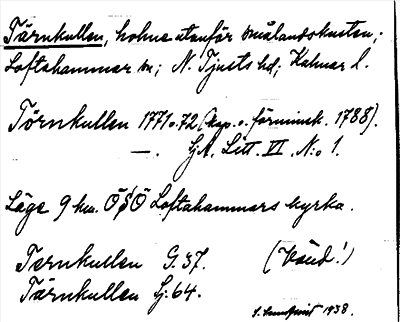 Tärnkullen, holme utanför Smålandskusten,
Loftahammar sn; N. Tjusts hd; Kalmar l.
Törnkullen 1771 o. 72 (kop. o. förminsk. 1788).
—. SjA, Litt. VI, N:o 1.
Läge 9 km. ÖSÖ Loftahammars kyrka.
Tärnkullen G. 37. (Vänd!)
Tärnkullen Sj. 64.
1938.